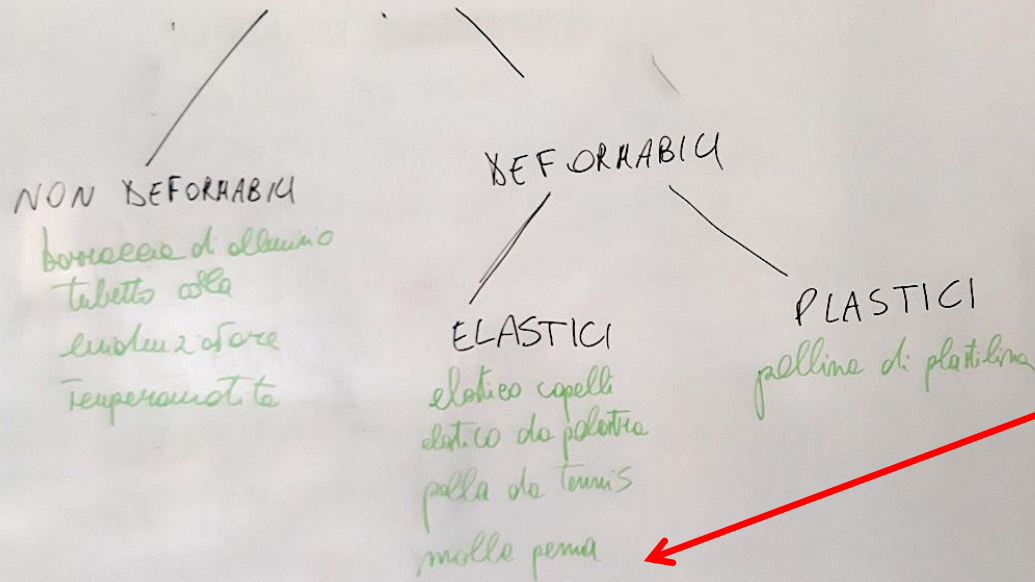 NON DEFORMABILI
borraccia di alluminio
tubetto colla
evidenziatore
Temperamatite
DEFORMABILI
ELASTICI
elastico capelli
elastico da palestra
palla da tennis
molla penna
PLASTICI
pallina di plastilina